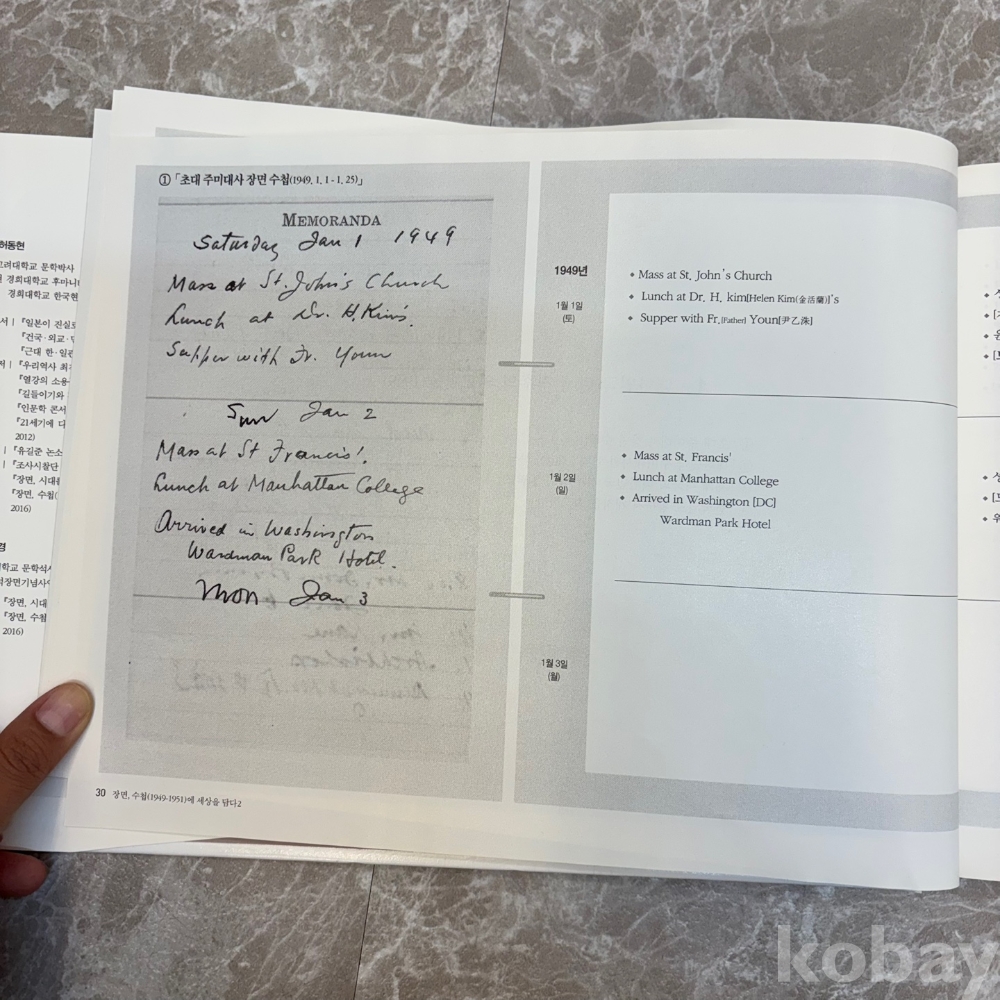 허동현
고려대학교 문학박사
경희대학교 후마니
경희대학교 한국현
서 | 『일본이 진실로
『건국·외교·민
『근대 한·일관
저 | 『우리역사 최
『열강의 소용
『길들이기와
『인문학 콘서
『21세기에 다
2012)
『유길준 논소
『조사시찰단
『장면, 시대를
『장면, 수첩(
2016)
경
학교 문학석사
석장면기념사
『장면, 시대
『장면, 수첩
2016)
① 「초대 주미대사 장면 수첩(1949. 1. 1 - 1. 25)」
MEMORANDA
Saturday Jan 1 1949
Mass at St. John's Church
Lunch at Dr. H. Kim's.
Supper with Fr. Youn
Sun Jan 2
Mass at St Francis'.
Lunch at Manhattan College
Arrived in Washington
Wardman Park Hotel.
Mon Jan 3
30 장면, 수첩(1949-1951)에 세상을 담다2
1949년
1월 1일
(토)
• Mass at St. John's Church
• Lunch at Dr. H. kim[Helen Kim(金活蘭)]'s
• Supper with Fr.[Father] Youn[尹乙洙]
1월 2일
(일)
• Mass at St. Francis'
• Lunch at Manhattan College
• Arrived in Washington [DC]
Wardman Park Hotel
1월 3일
(월)
kobay